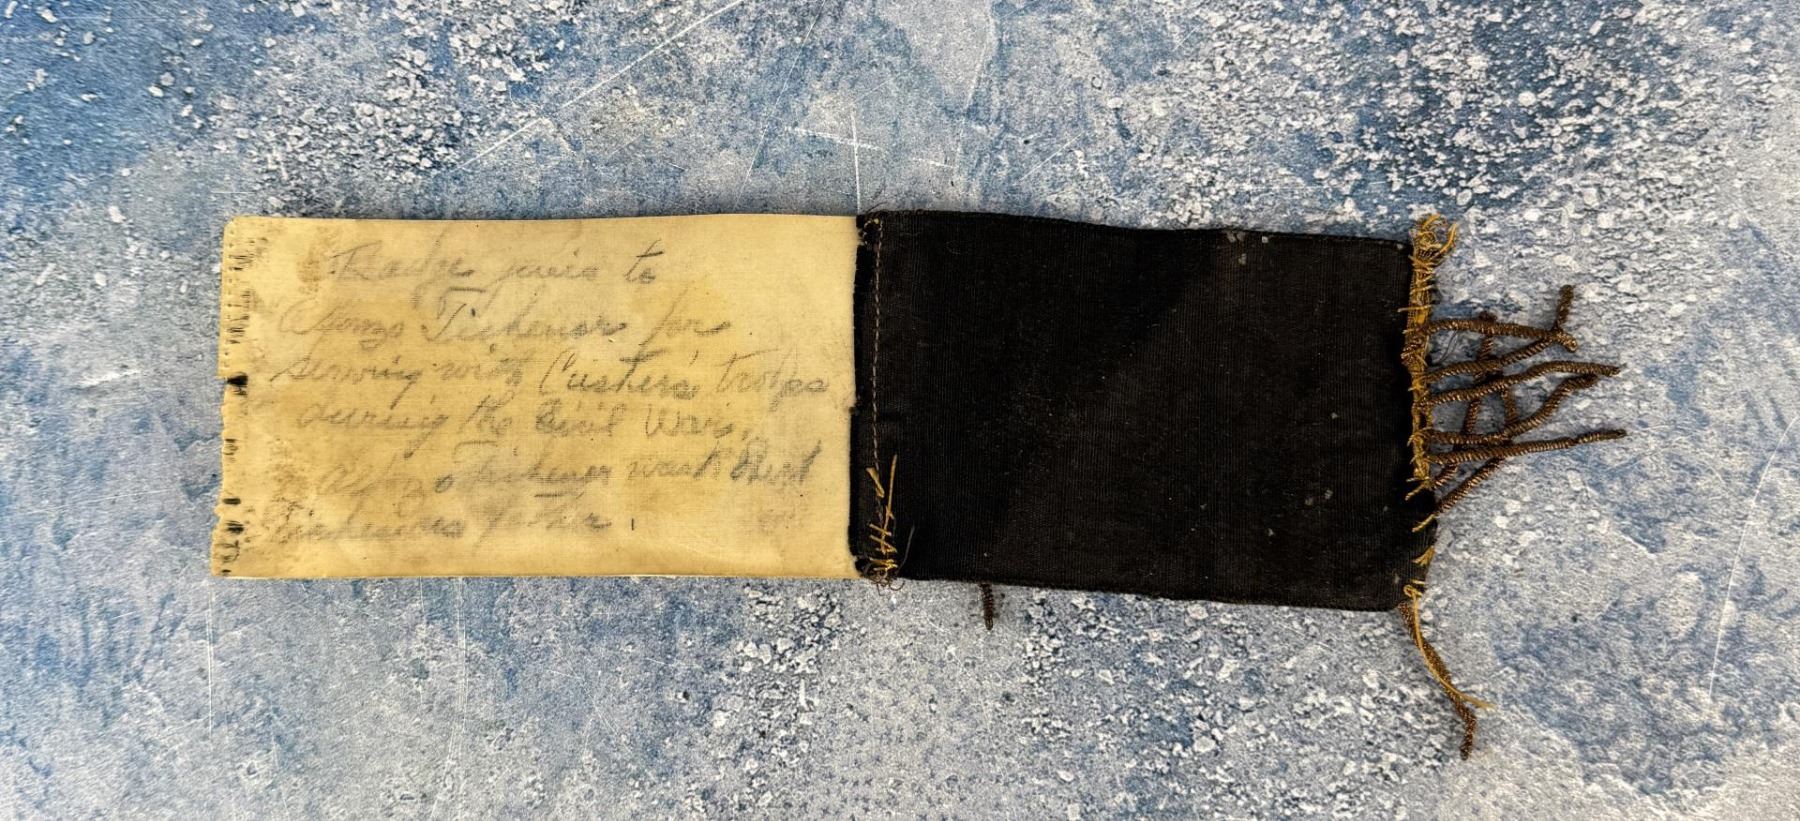 Badge given to
Alonzo Tichenor for
serving with Custer's troops
during the Civil War,
Alonzo Tichenor was
Tichenors father